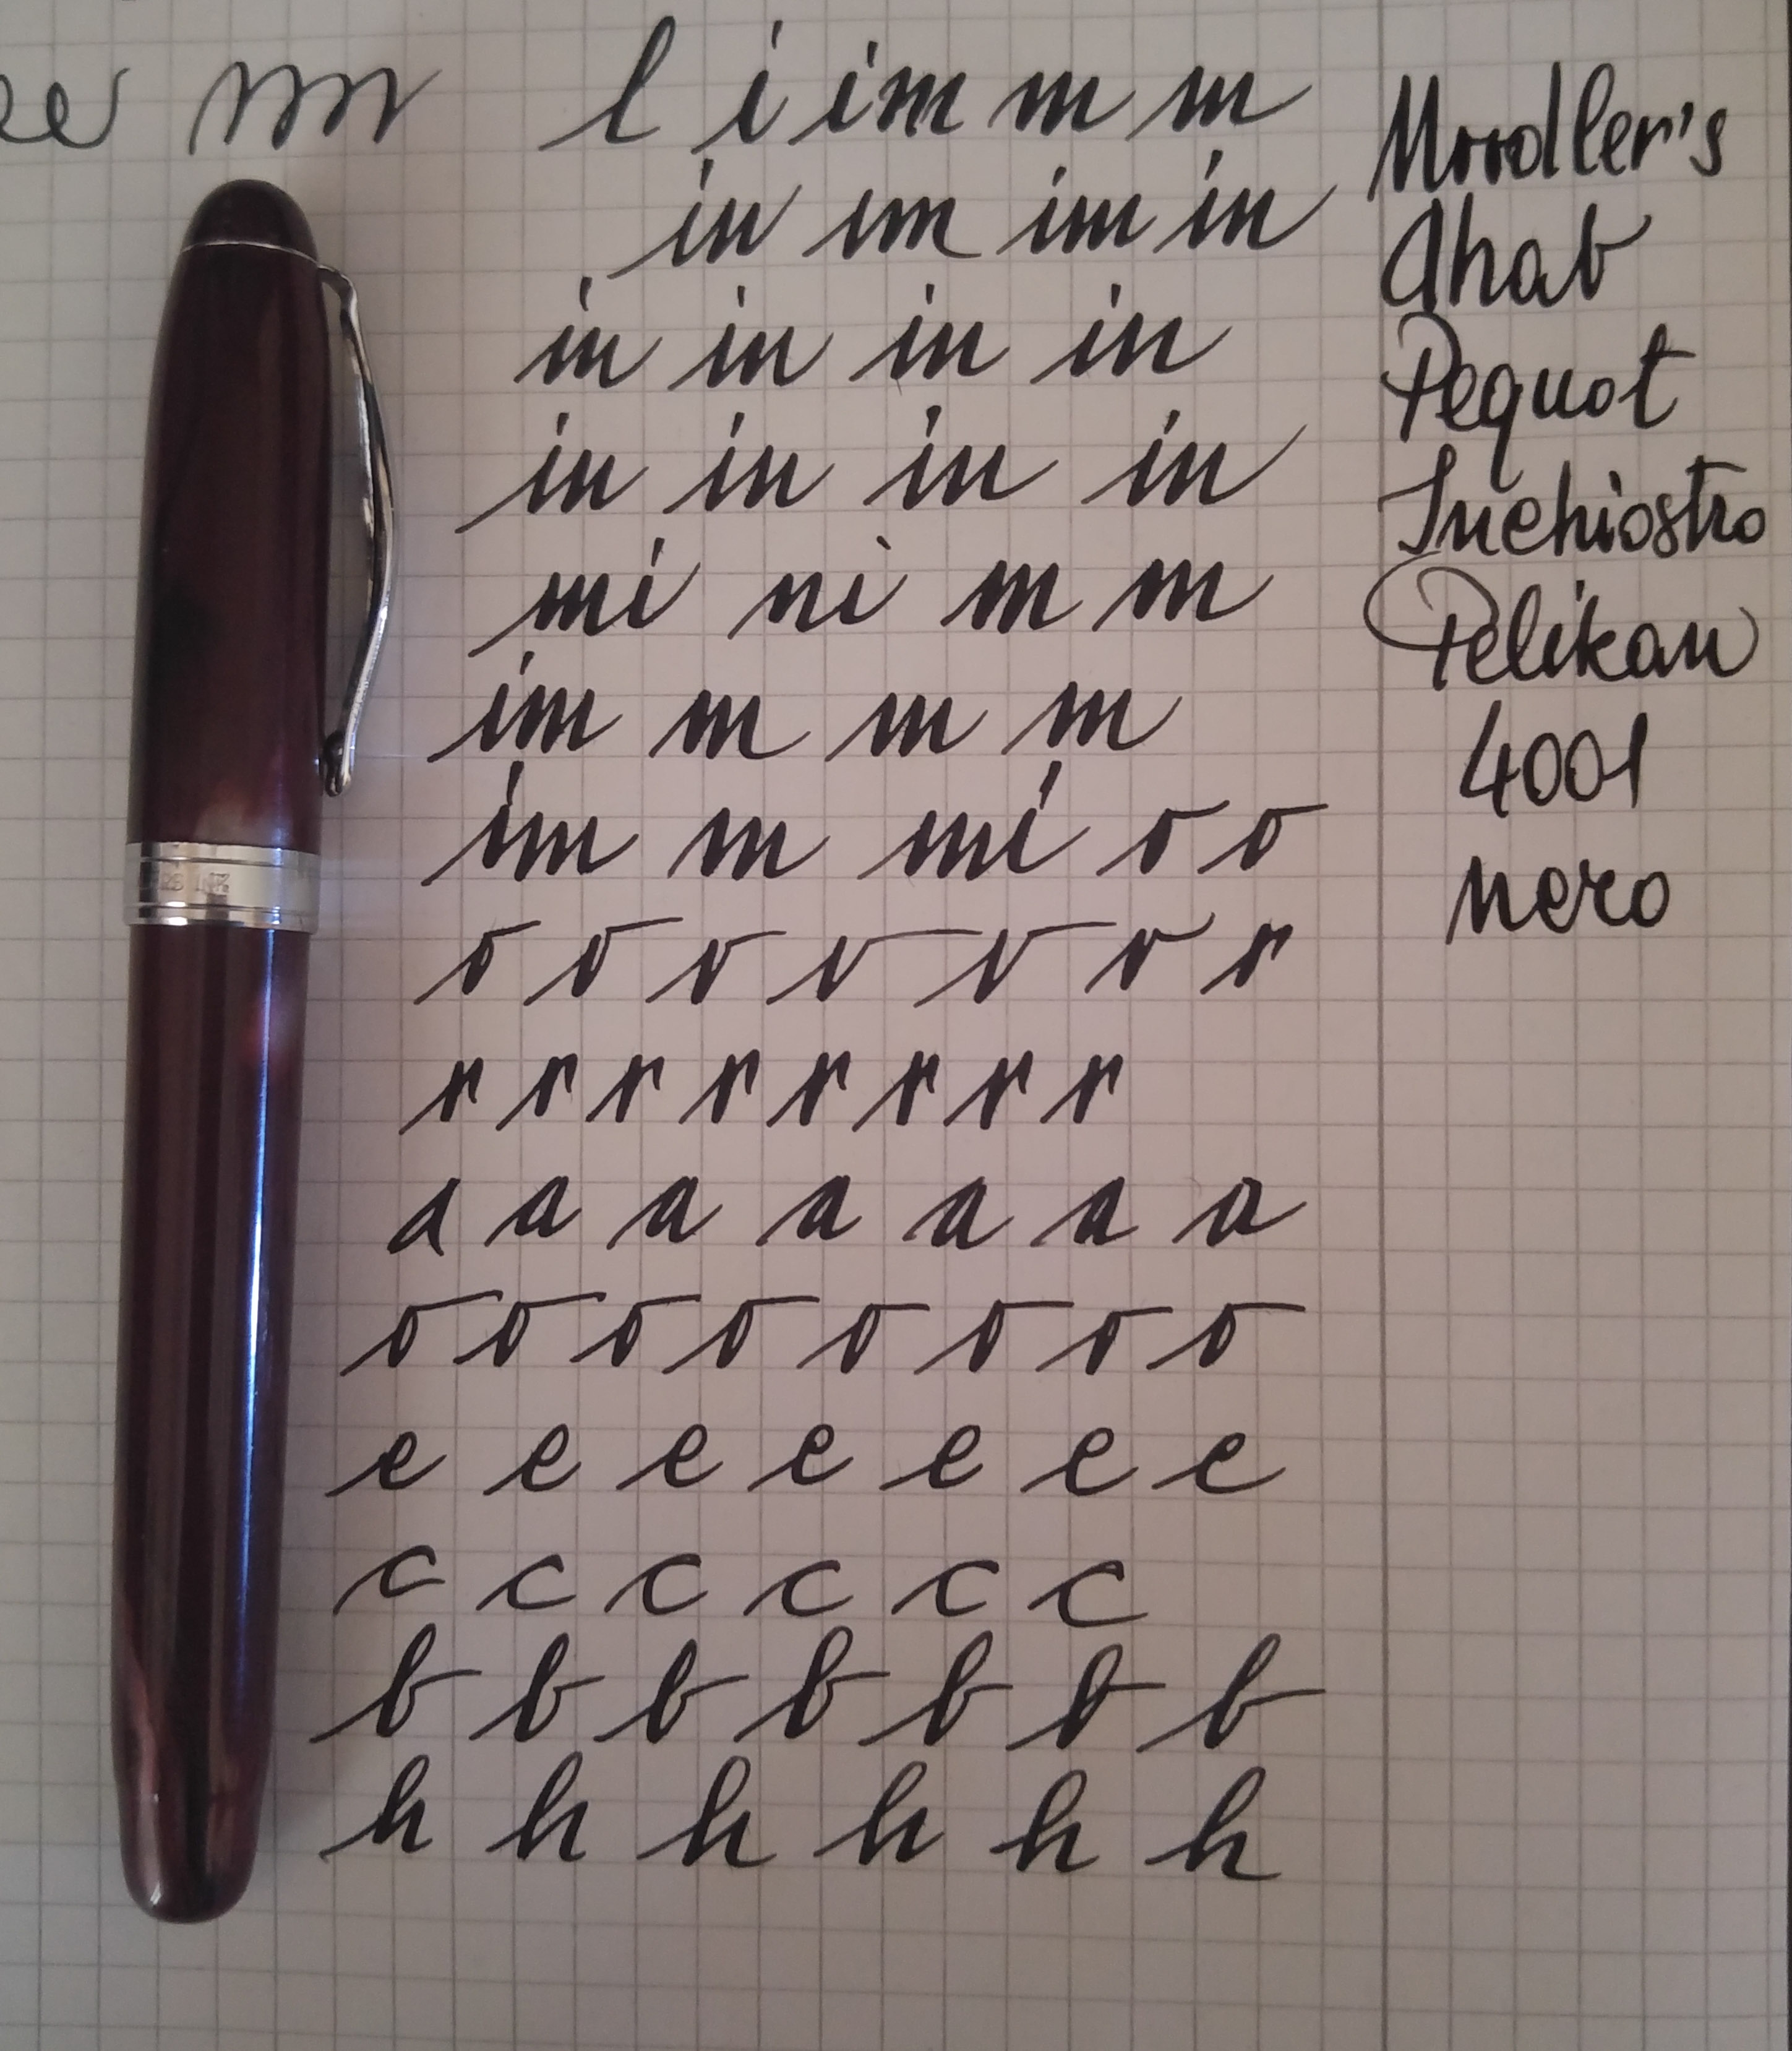 ee m l i im m m
in im im in
in in in in
in in in in
mi ni m m
im m m m
im m mi o o
o o v v v v r
r r r r r r r r
a a a a a a a
o o o o o o o o
e e e e e e e
c c c c c c
b b b b b b b
h h h h h h
Noodler's
Ahab
Pequot
Inchiostro
Pelikan
4001
nero